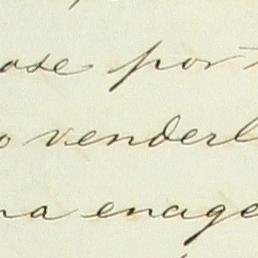 ose por
o venderl
na enage